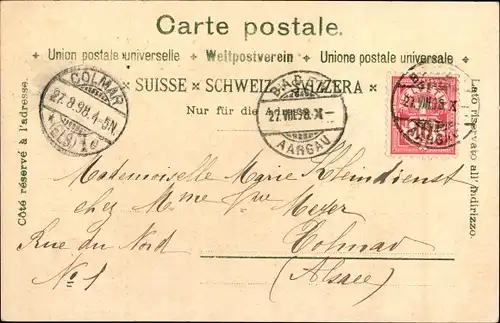 Carte postale.
Union postale universelle Weltpostverein Unione postale universale
SUISSE SCHWEIZ SVIZZERA
Nur für die
Côté réservé à l'adresse.
Lato riservato all'indirizzo.
COLMAR
27.8.98.4-5N.
BADEN
27.VIII.98.X
AARGAU
27.VIII.98.X
Mademoiselle Marie Kleindienst
chez Mme Vve Meyer
Rue du Nord Colmar
No 1 (Alsace)